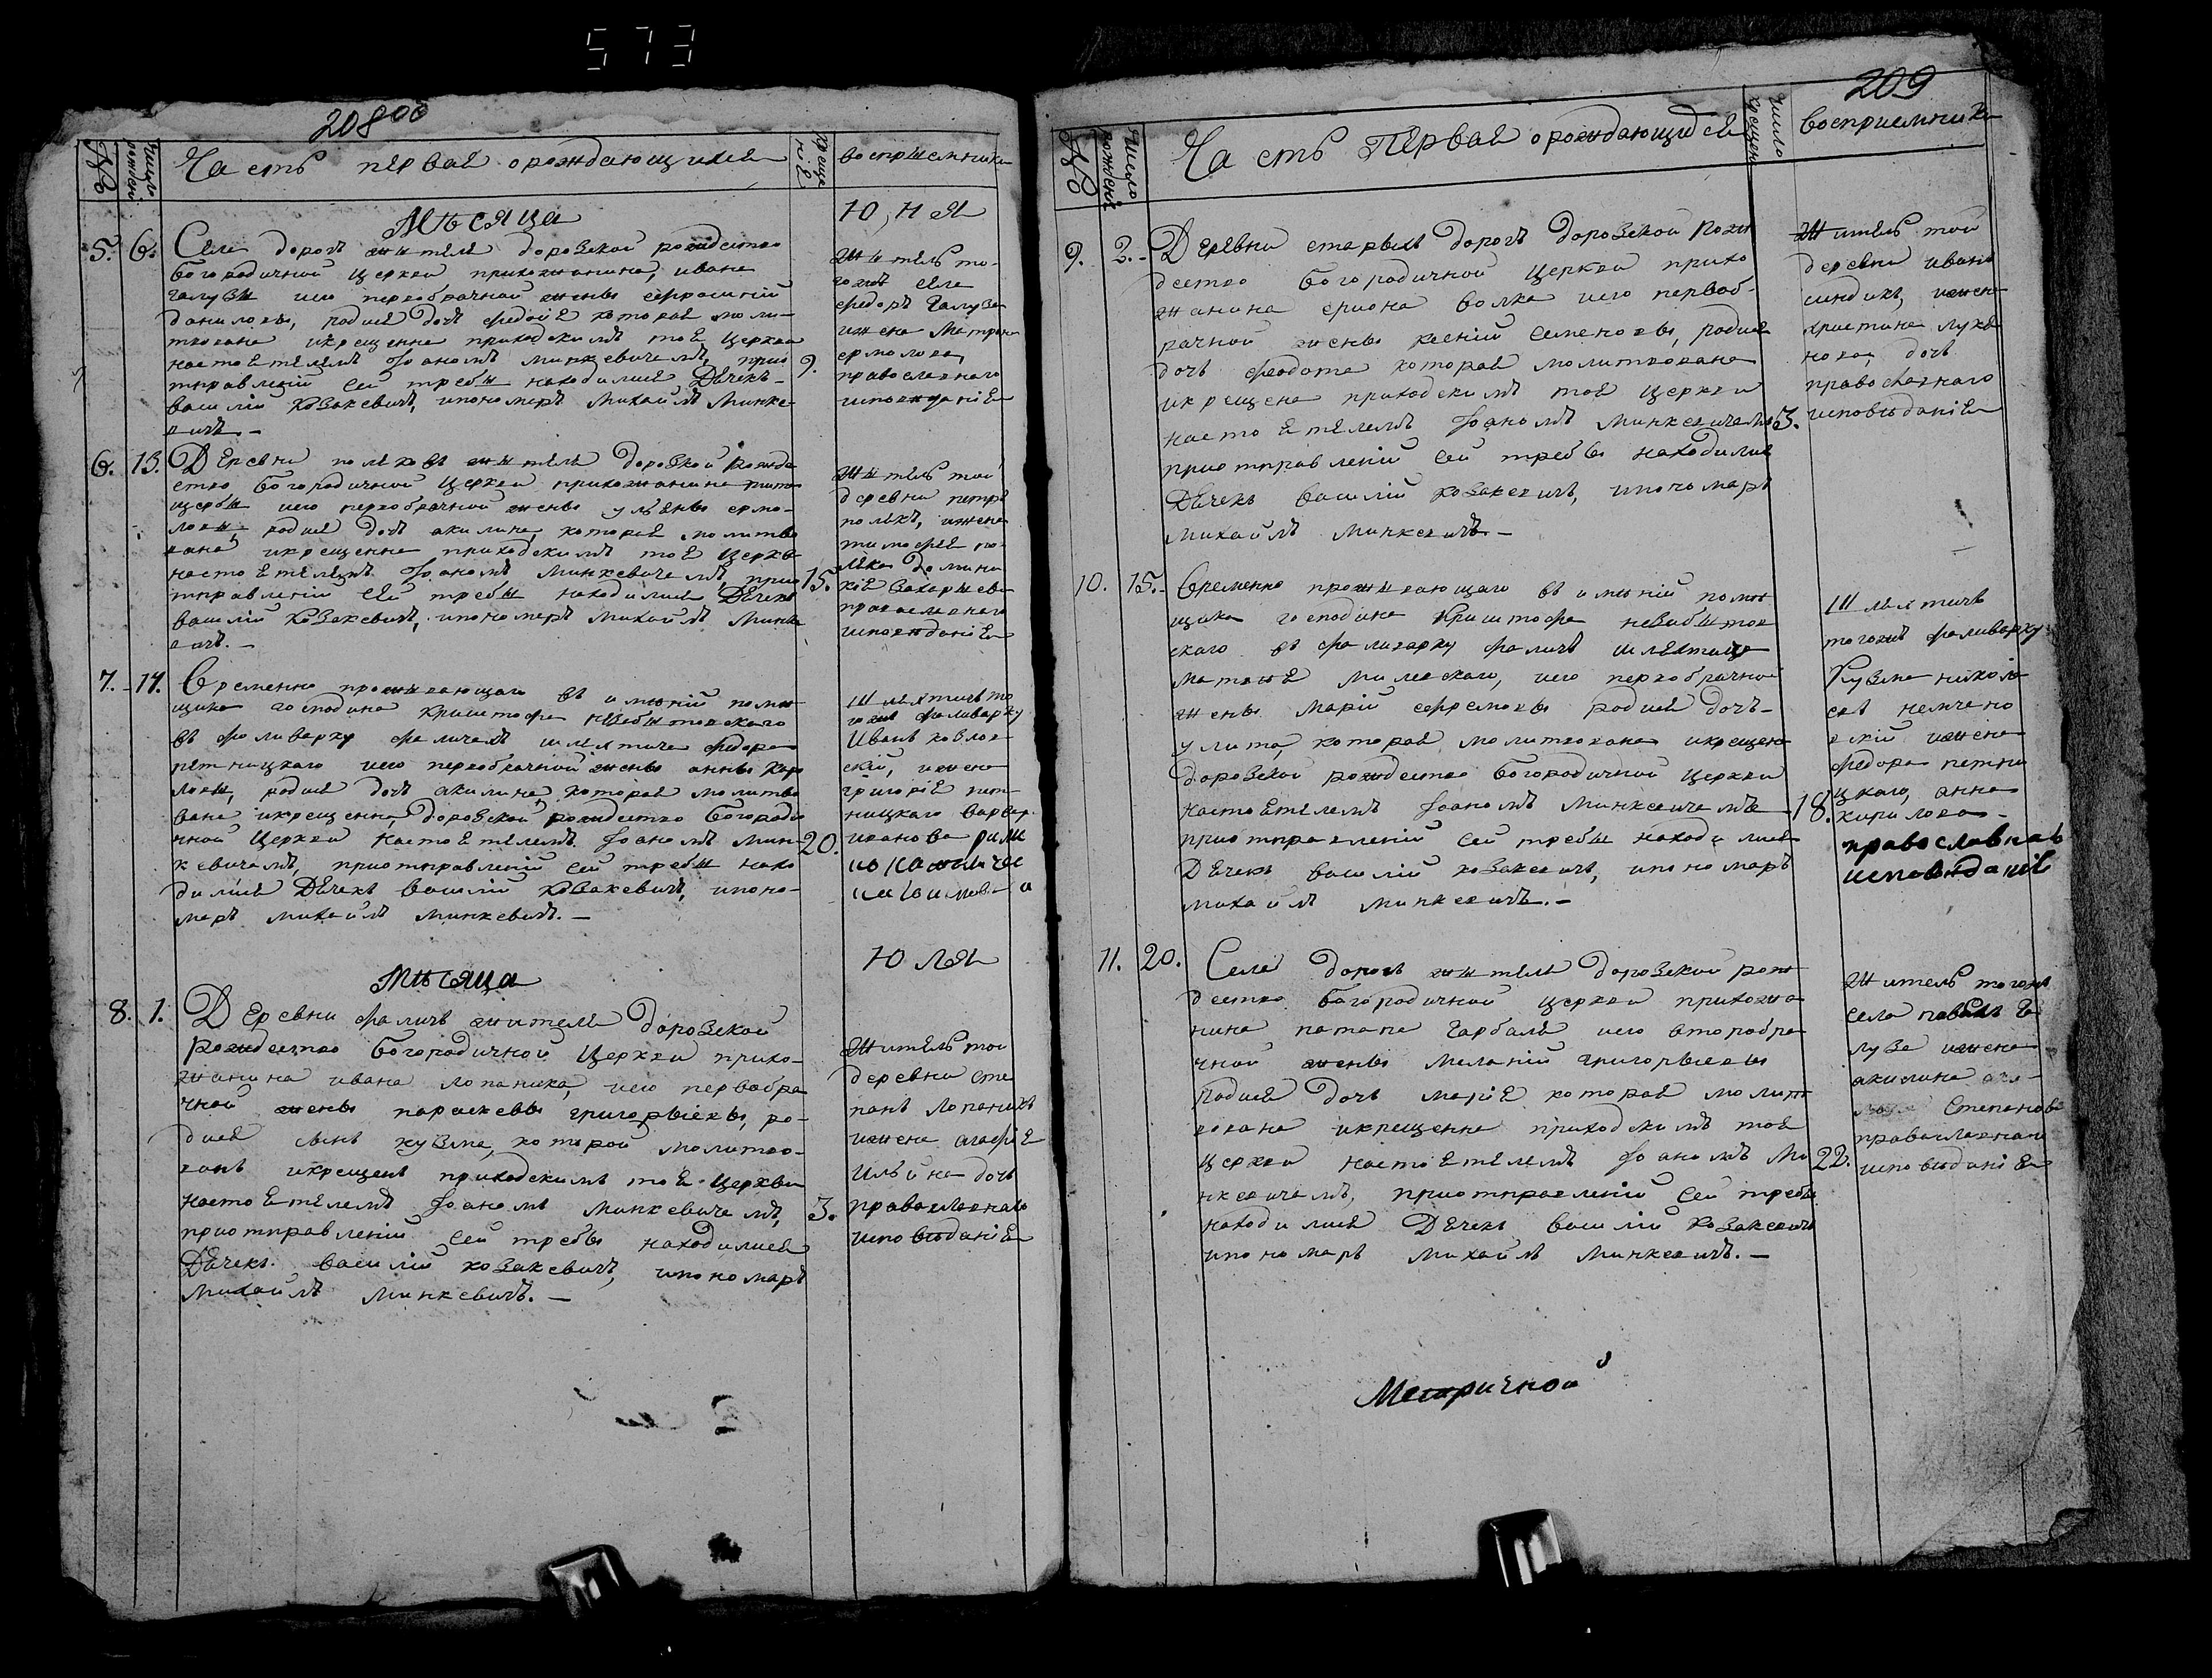 573
208 об
№
Число рожден.
Часть первая о рождающихся
креще нія
восприемники
Мѣсяца
Ю,ня
5. 6.
Села дорогъ жытеля дорозской рождество
богородичной церкви прихожанина, ивана
галузы иего первобрачной жены ефросиніи
даниловы, родися дочь федосія которая моли-
твована икрещенна приходскимъ тоя церкви
настоятелемъ Іоаномъ минкевичемъ, приο
тправленіи сей требы находилися Дячекъ
василій козакевичъ, ипономаръ михайлъ Минке
вичъ. —
9.
Жытель то-
гожъ села
федоръ Галуза
ижена Матрона
ермолова
православнаго
исповѣданія
6. 13.
Деревни полѣковъ жытеля дорозкой рожде
ство богородичной церкви прихожанина тита
щербы иего первобрачной жены ульяны ермо-
ловы, родися дочь акилина, которая молитво
вана икрещенна приходскимъ тоя церкви
настоятелемъ Іоаномъ минкевичемъ, прио
тправленіи сей требы находилися Дячекъ
василій козакевичъ, ипономаръ михайлъ Минке
вичъ. —
15.
Жытель той
деревни петръ
полякъ, ижена
тимофея по-
ляка домини
кія захарыева
православнаго
исповѣданія
7. 17.
Временно прожывающаго въ имѣніи помѣ
щика господина криштофа незабытовскаго
въ фольварку фаличахъ шляхтича федора
петницкаго иего первобрачной жены анны кири
ловы, родися дочь акилина, которая молитво
вана икрещенна, дорозской рождество богороди
чной церкви настоятелемъ Іоаномъ Мин-
кевичемъ, приотправленіи сей требы нахо
дилися Дячекъ василій козакевичъ, ипоно-
маръ михайлъ минкевичъ. —
20.
Шляхтичъ то
гожъ фольварку
Иванъ козлов-
скій, ижена
григорія пет-
ницкаго варвара
иванова рим
Мѣсяца
Юля
8. 1.
Деревни фаличъ жителя дорозской
рождество богородичной церкви прихо-
жанина ивана лопаника, иего первобра
чной жены параскевы григорыевы, ро-
дися сынъ кузма, которой молитво-
ванъ икрещенъ приходскимъ тоя церкви
настоятелемъ Іоаномъ минкевичемъ,
приотправленіи сей требы находилися
Дячекъ василій козакевичъ, ипономаръ
михайлъ минкевичъ. —
3.
Житель той
деревни сте
панъ лопаникъ
ижена агафія
ильина дочь
православнаго
исповѣданія
209
№
Число рожденія
Часть первая о рождающихся
число крещен
восприемники
9. 2.
Деревни старыхъ дорогъ дорозской рож
дество богородичной церкви прихо
жанина спиона волка иего первоб-
рачной жены ксеніи семеновы, родися
дочь феодота которая молитвована
икрещена приходскимъ тоя церкви
настоятелемъ Іоаномъ минкевичемъ
приотправленіи сей требы находилися
Дячекъ василій козакевичъ, ипономаръ
михайлъ минкевичъ. —
3.
Житель той
деревни иванъ
синдикъ, ижена
христина лукья
нова, дочь
православнаго
исповѣданія
10. 15.
Временно прожывающаго въ имѣніи помѣ
щика господина криштофа незабытов
скаго въ фольварку фаличъ шляхтица
матвія милевскаго, иего первобрачной
жены маріи ефремовы родися дочь
улита, которая молитвована икрещена
дорозской рождество богородичной церкви
настоятелемъ Іоаномъ минкевичемъ
приотправленіи сей требы находилися
Дячекъ василій козакевичъ, ипономаръ
михайлъ минкевичъ. —
18.
Шляхтичъ
тогожъ фольварку
Кузма никола
евъ
ижена
федора петни
цкаго, анна
кирилова
православнаго
исповѣданія
11. 20.
Села дорогъ жытеля дорозской рож
дество богородичной церкви прихожа
нина патапа гарбаля иего второбра
чной жены меланіи григорыевы
родися дочь марія которая молит
вована икрещенна приходскимъ тоя
церкви настоятелемъ Іоаномъ Ми
нкевичемъ, приотправленіи сей требы
находилися Дячекъ василій козакевичъ
ипономаръ михайлъ минкевичъ. —
22.
житель тогожъ
села павелъ га
луза ижена
акилина
степанова
православнаго
исповѣданія
Метричной